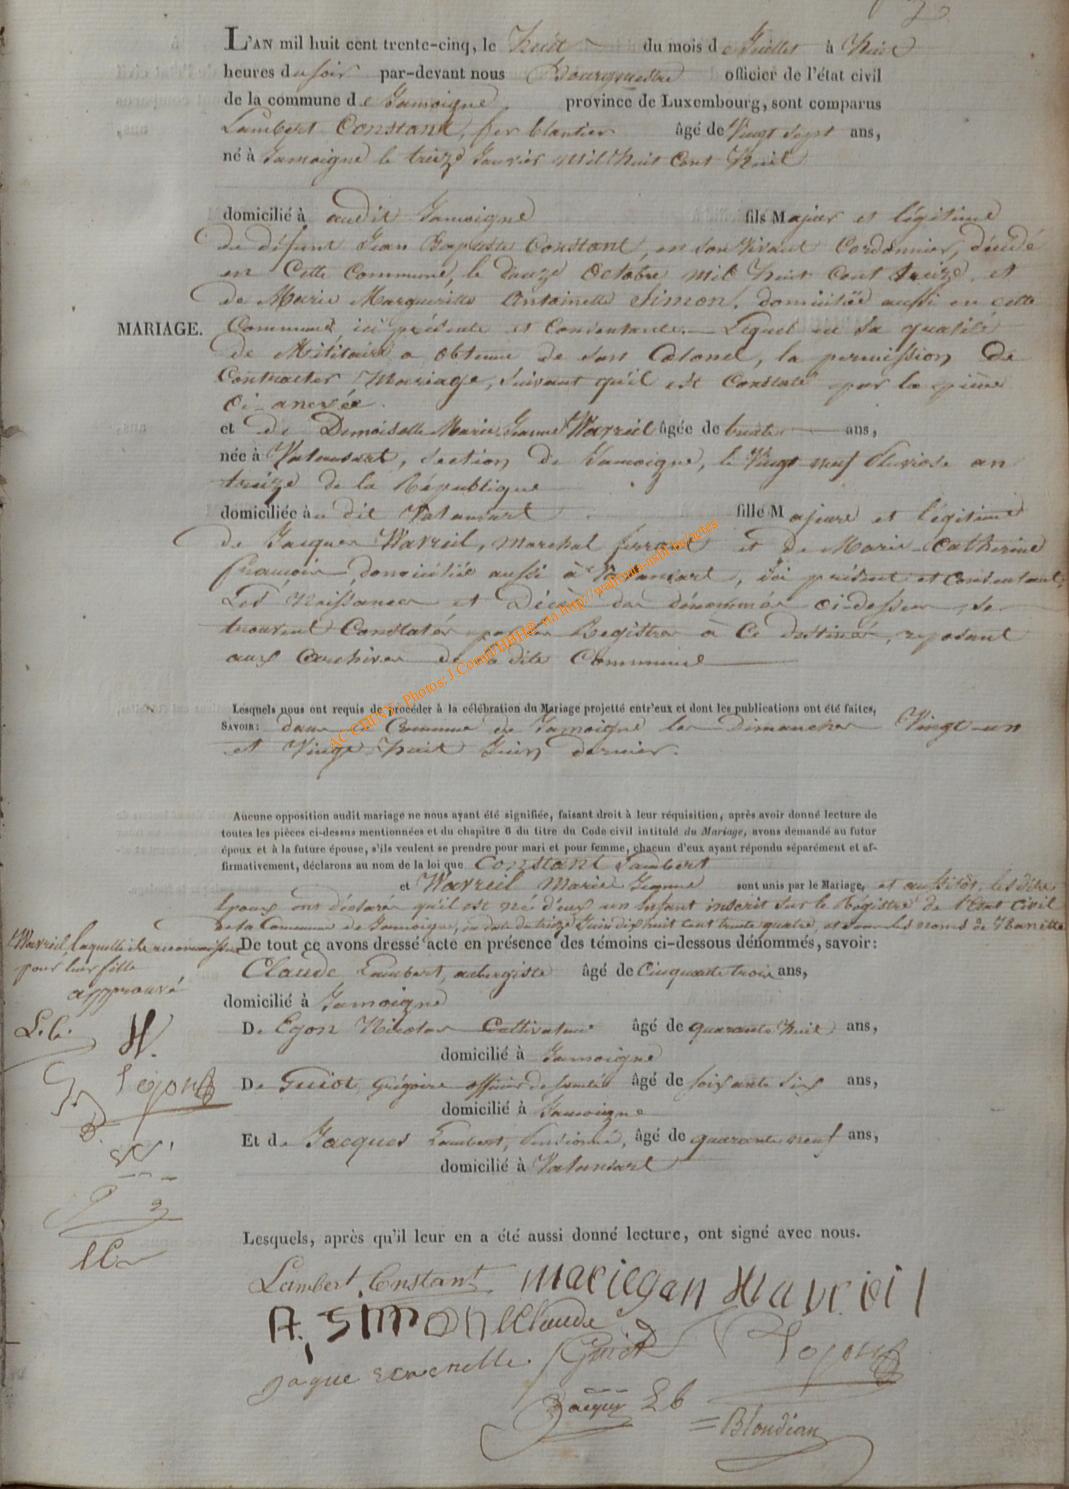 L'AN mil huit cent trente-cinq, le huit du mois de Juillet à huit
heures du soir par-devant nous Bourgmestre officier de l'état civil
de la commune de Jamoigne, province de Luxembourg, sont comparus
Lambert Constant, ferblantier âgé de Vingt Sept ans,
né à Jamoigne le treize Janvier mil huit Cent huit
domicilié à audit Jamoigne fils Majeur et légitime
de défunt Jean Baptiste Constant, en son vivant Cordonnier, décédé
en Cette Commune, le douze Octobre mil huit Cent treize, et
de Marie Marguerite Antoinette Simon, domiciliée aussi en cette
MARIAGE. Commune, ici présente et Consentante. Lequel en sa qualité
de Militaire a obtenu de son Colonel, la permission de
Contracter Mariage, suivant qu'il est Constaté par la pièce
Ci-annexée.
et de Demoiselle Marie Jeanne Wavreil âgée de trente ans,
née à Valansart, Section de Jamoigne, le Vingt neuf Pluviose an
treize de la République
domiciliée à dit Valansart fille Majeure et légitime
de Jacques Wavreil, Marchal ferrant et de Marie Catherine
domiciliée aussi à Valansart, ici présent et Consentant,
Les Naissances et Décès des dénommés ci-dessus, se
trouvent Constatés par les Registres à Ce destinés, reposant
aux Archives de la dite Commune
Lesquels nous ont requis de procéder à la célébration du Mariage projetté entr'eux et dont les publications ont été faites,
SAVOIR: dans la Commune de Jamoigne les Dimanches Vingt-un
et Vingt huit Juin dernier.
Aucune opposition audit mariage ne nous ayant été signifiée, faisant droit à leur réquisition, après avoir donné lecture de
toutes les pièces ci-dessus mentionnées et du chapitre 6 du titre du Code civil intitulé du Mariage, avons demandé au futur
époux et à la future épouse, s'ils veulent se prendre pour mari et pour femme, chacun d'eux ayant répondu séparément et af-
firmativement, déclarons au nom de la loi que Constant Lambert
et Wavreil Marie Jeanne sont unis par le Mariage, et aussitôt, les dits
Epoux ont déclaré qu'il est né d'eux un Enfant inscrit sur le Registre de l'Etat Civil
de la Commune de Jamoigne, en date du treize Juin dix huit cent trente quatre, et sous les noms de
Wavreil, laquelle ils reconnaissent
pour leur fille
approuvé
De tout ce avons dressé acte en présence des témoins ci-dessous dénommés, savoir:
Claude Lambert, aubergiste âgé de Cinquante trois ans,
domicilié à Jamoigne
De Egon Nicolas Cultivateur âgé de quarante huit ans,
domicilié à Jamoigne
De Guiot, Grégoire officier de santé âgé de soixante six ans,
domicilié à Jamoigne
Et de Jacques Lambert, Pensionné, âgé de quarante neuf ans,
domicilié à Valansart
Lesquels, après qu'il leur en a été aussi donné lecture, ont signé avec nous.
Lambert Constant mariegan Wavreil
A. Simon Claude
Guiot
Jacques Lb
Blondiau